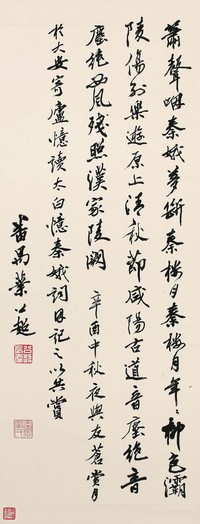 箫聲咽秦娥夢斷秦樓月秦樓月年〻柳色灞
陵傷別樂遊原上清秋節咸陽古道音塵絶音
塵絶西風殘照漢家陵闕 辛酉中秋夜與友茗賞月
於大安寄廬憶讀太白憶秦娥詞因記之以共賞
番禺葉公超